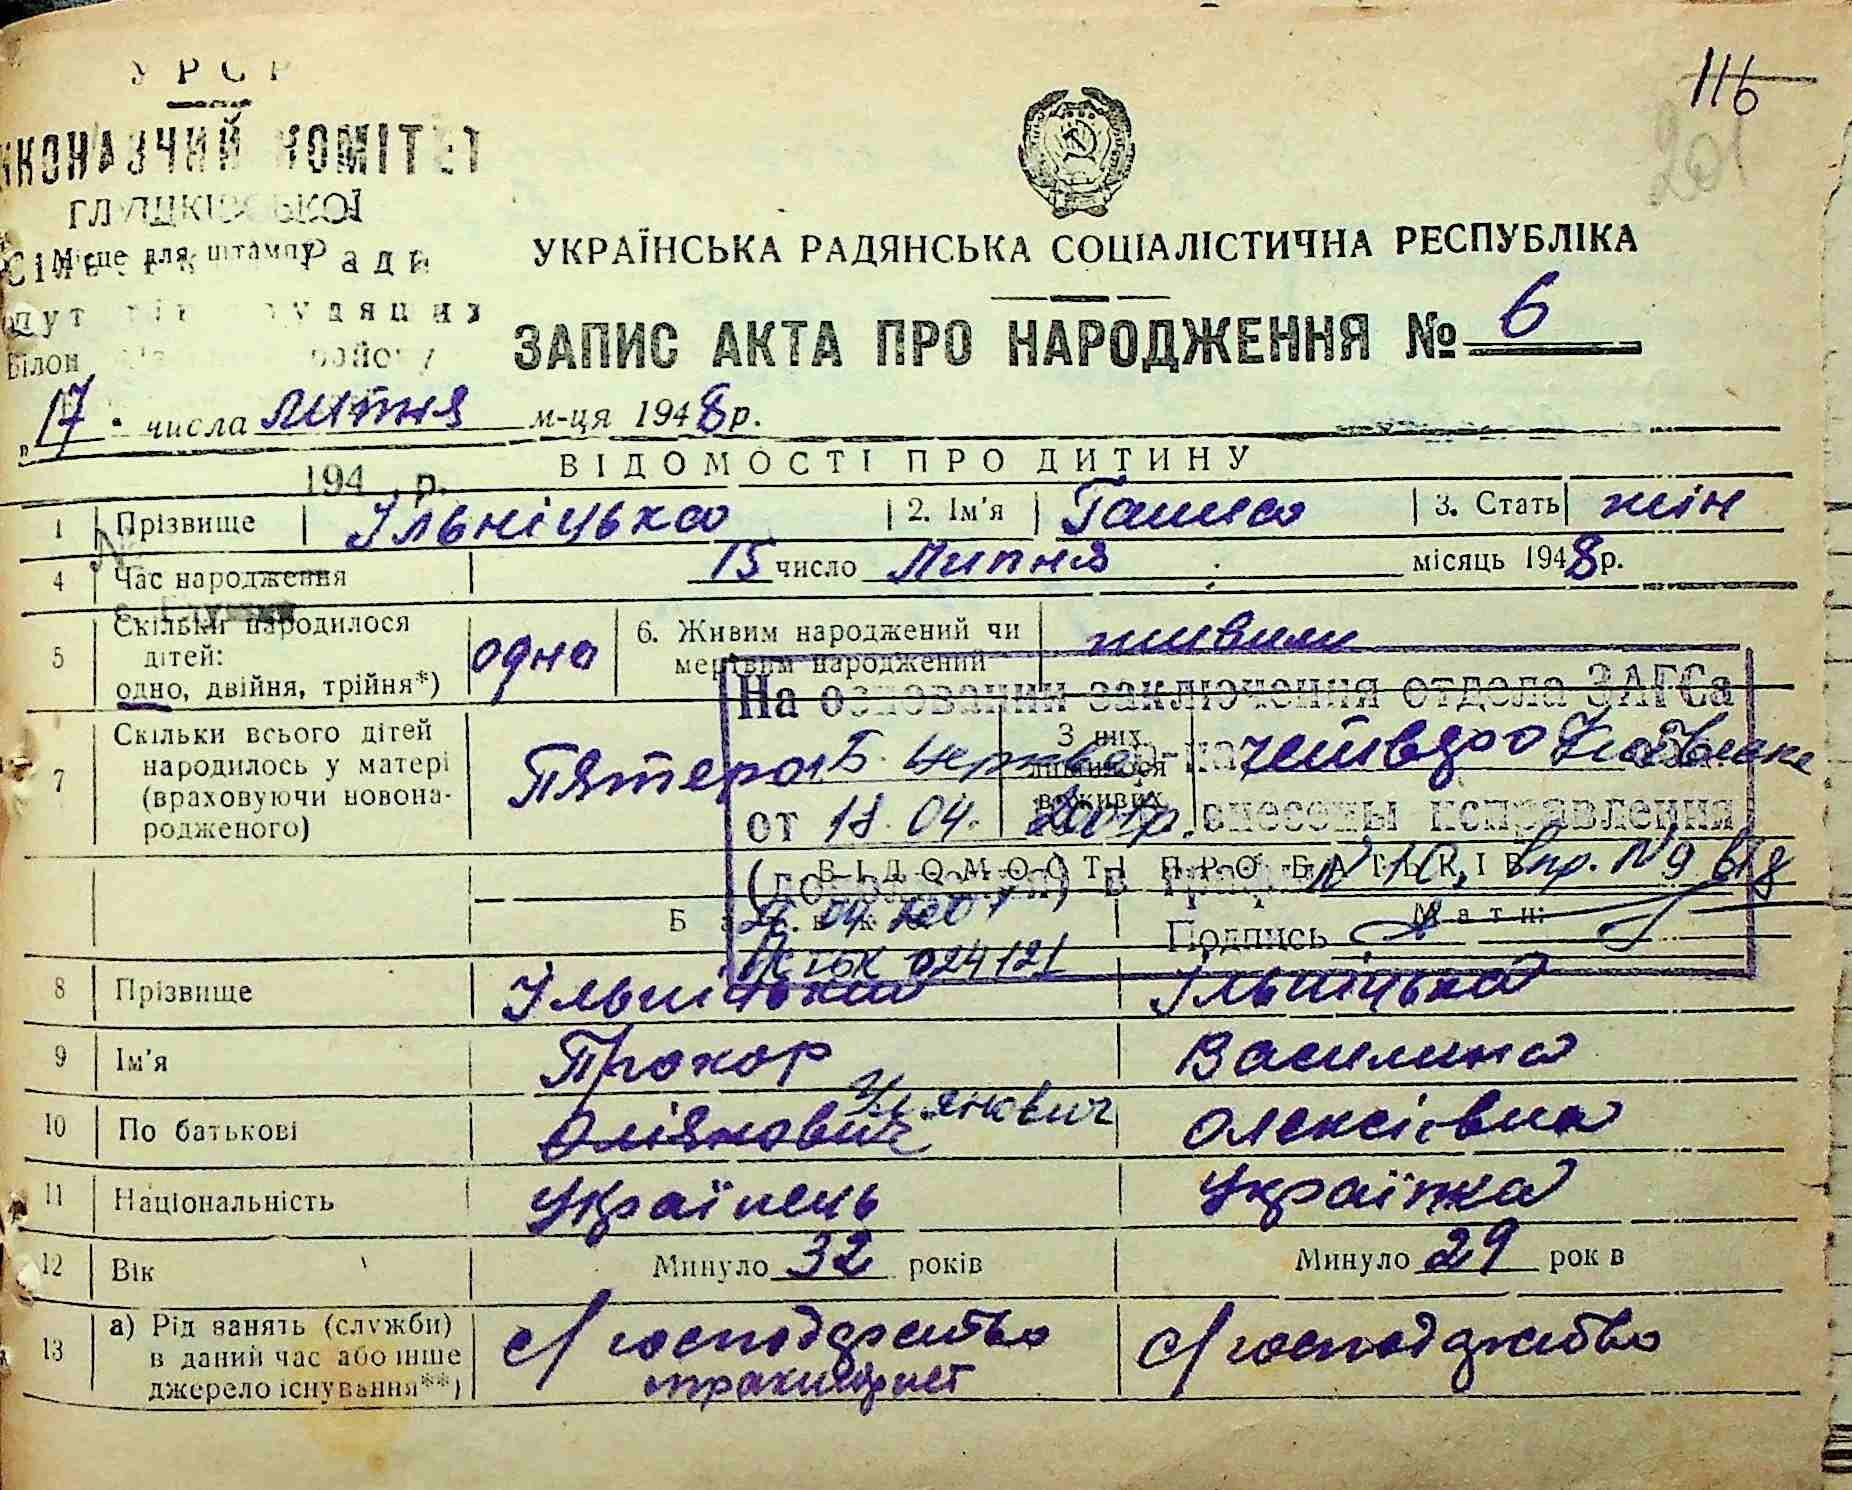 УРСР
ВИКОНАВЧИЙ КОМІТЕТ
Місце для штампу
УКРАЇНСЬКА РАДЯНСЬКА СОЦІАЛІСТИЧНА РЕСПУБЛІКА
ЗАПИС АКТА ПРО НАРОДЖЕННЯ № 6
116
201
„17" числа липня м-ця 1948 р.
194 р.
ВІДОМОСТІ ПРО ДИТИНУ
1 Прізвище Ільніцька 2. Ім'я Ганна 3. Стать жін
4 Час народження 15 число Липня місяць 1948 р.
5 Скільки народилося дітей: одно, двійня, трійня*) одна 6. Живим народжений чи мертвим народжений живим
7 Скільки всього дітей народилось у матері (враховуючи новонародженого) Пятеро З них лишилося в живих четвяро
На основании заключения отдела ЗАГСа
Б. Церква
от 18.04. 2001р. внесены исправления
(дополнения) в графу N 10, впр. N 9 від
26.04.2001
024121 Подпись
ВІДОМОСТІ ПРО БАТЬКІВ
Батько Мати
8 Прізвище Ільніцький Ільніцька
9 Ім'я Прохор Василина
Ул.янович
10 По батькові Оліянович Олексіївна
11 Національність Українець Українка
12 Вік Минуло 32 років Минуло 29 років
13 а) Рід занять (служби) в даний час або інше джерело існування**) с/господарство с/господарство
тракторист